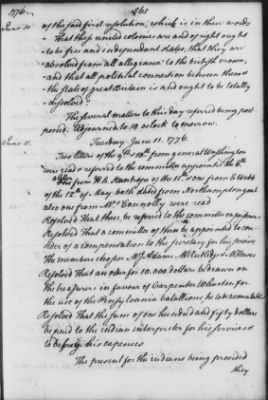 1776.
June 10
265
of the said first resolution, which is in these words
"That these united colonies are and of right ought
to be free and independant states, that they are
absolved from all allegiance to the british crown,
and that all political connection between them &
the state of great Britain is and ought to be totally
dissolved"
The several matters to this day referred being post
poned. Adjourned to 10 oClock to morrow.
June 11.
Tuesday June 11. 1776.
Two letters of the 9th & 10th from general Washington
were read & referred to the committee appointed the
One from of the 11th & one from C Webb
of the 12th of May both dated from Northampton goal
also one from Mr Connolly were read
Resolved That these be referred to the committee on prisoners
Resolved That a committee of three be appointed to con-
sider of a compensation to the secretary for his services
The members chosen Mr J Adams Mr Rutledge & Mr Howes
Resolved That an order for 10.000 dollars be drawn on
the treasurers in favour of Carpenter Wharton for
the use of the Pensylvania batallions he to be accountable
Resolved That the sum of one hundred and fifty dollars
be paid to the indian interpreter for his services &
to defray his expences
The present for the indians being provided
they